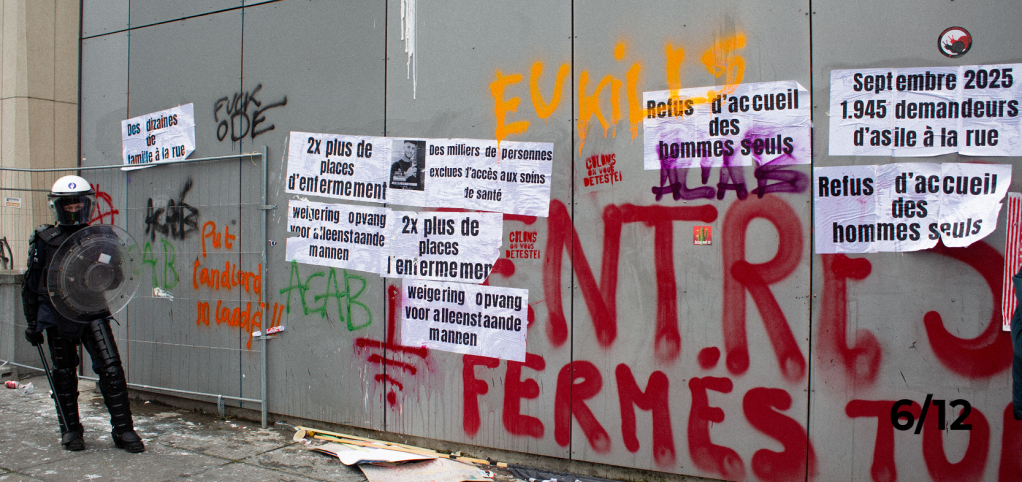 Des dizaines
de
famille à la rue
FUCK
ODE
2x plus de
places
d'enfermement
Des milliers de personnes
exclues d'accès aux soins
de santé
weigering opvang
voor alleenstaande
mannen
2x plus de
places
l'enfermement
weigering opvang
voor alleenstaande
mannen
EU KILLS
COLONS
ON VOUS
DETESTE!
COLONS
ON VOUS
DETESTE!
Refus d'accueil
des
hommes seuls
ACAB
Septembre 2025
1.945 demandeurs
d'asile à la rue
Refus d'accueil
des
hommes seuls
ACAB
ACAB
Put
landlord
ACAB
CENTRES
FERMËS
TU
6/12